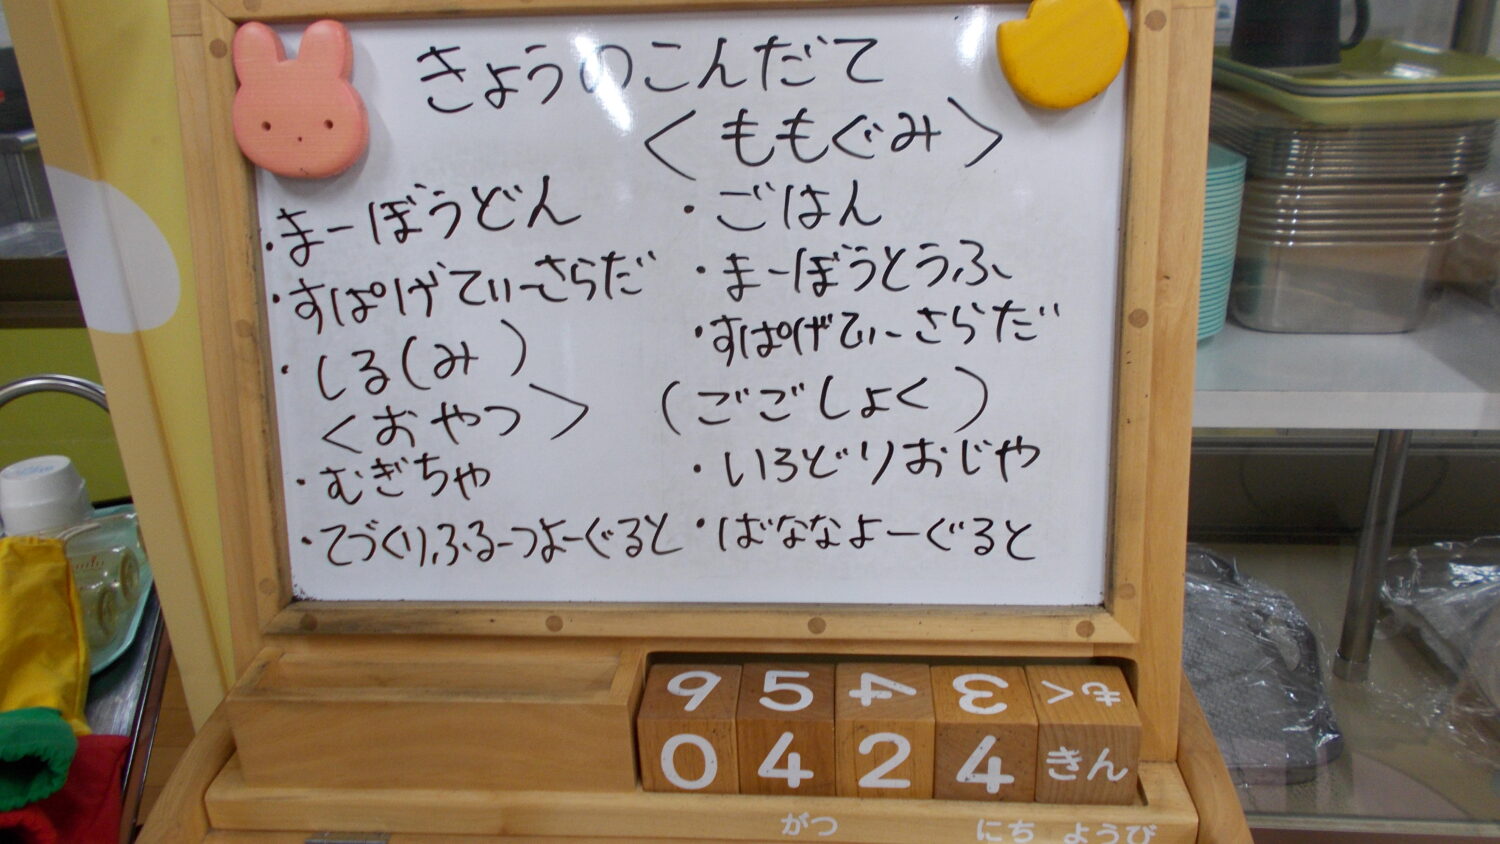 きょうのこんだて
・まーぼうどん
・すぱげてぃーさらだ
・しる(み )
<おやつ>
・むぎちゃ
・てづくりふるーつよーぐると
<ももぐみ>
・ごはん
・まーぼうとうふ
・すぱげてぃーさらだ
(ごごしょく)
・いろどりおじや
・ばななよーぐると
9 5 4 3 もく
0 4 2 4 きん
がつ にち ようび